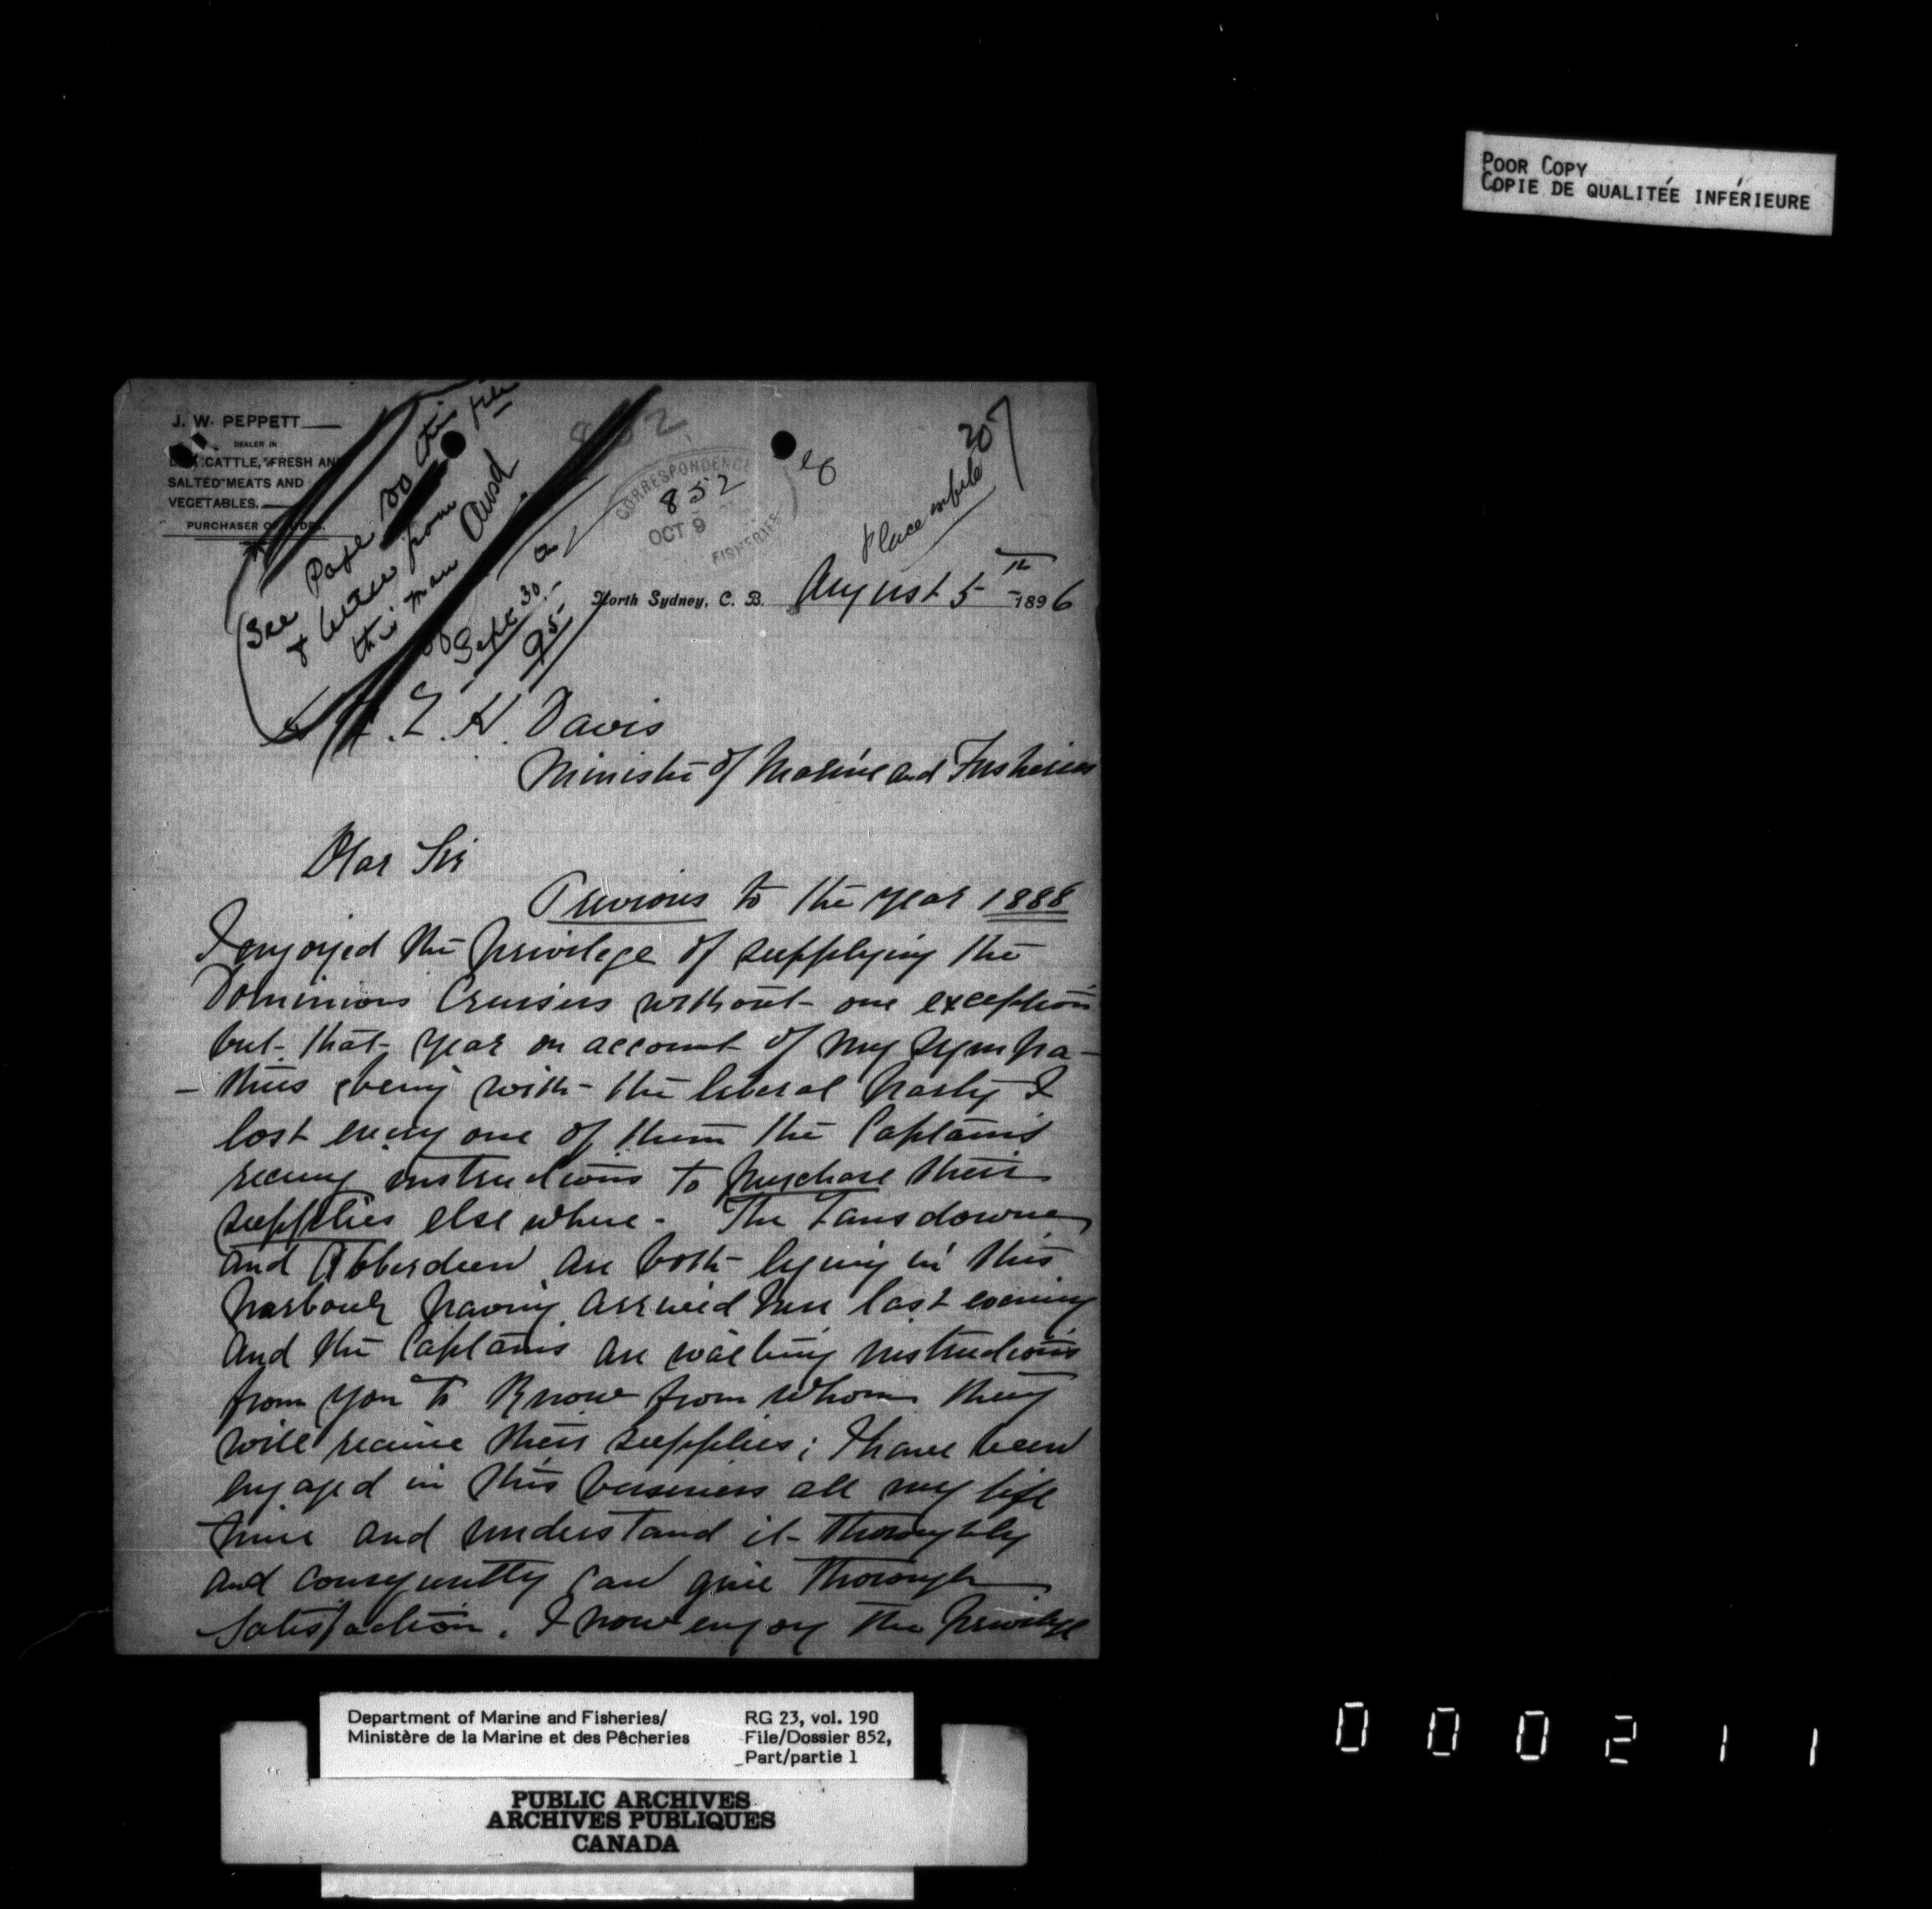 POOR COPY
COPIE DE QUALITÉE INFÉRIEURE
J. W. PEPPETT
DEALER IN
CATTLE, FRESH AND
SALTED MEATS AND
VEGETABLES.
PURCHASER OF HIDES.
See Page 100 this file
& letter from
this man dated
Sept 30
95
852
CORRESPONDENCE
852
OCT 9
FISHERIES
207
Place on file
North Sydney, C. B. August 5th 1896
L. H. Davis
Minister of Marine and Fisheries
Dear Sir
Previous to the year 1888
I enjoyed the privilege of supplying the
Dominion Cruisers without one exception
but that year on account of my sympa-
-thies being with the liberal party I
lost every one of them the Captains
receiving instructions to purchase their
supplies else where. The Lansdowne
and Abberdeen are both lying in this
harbour having arrived here last evening
and the Captains are waiting instructions
from you to Know from whom they
will receive their supplies; I have been
engaged in this business all my life
time and understand it thoroughly
and consequently can give thorough
satisfaction. I now enjoy the privilege
Department of Marine and Fisheries/
Ministère de la Marine et des Pêcheries
RG 23, vol. 190
File/Dossier 852,
Part/partie 1
PUBLIC ARCHIVES
ARCHIVES PUBLIQUES
CANADA
000211